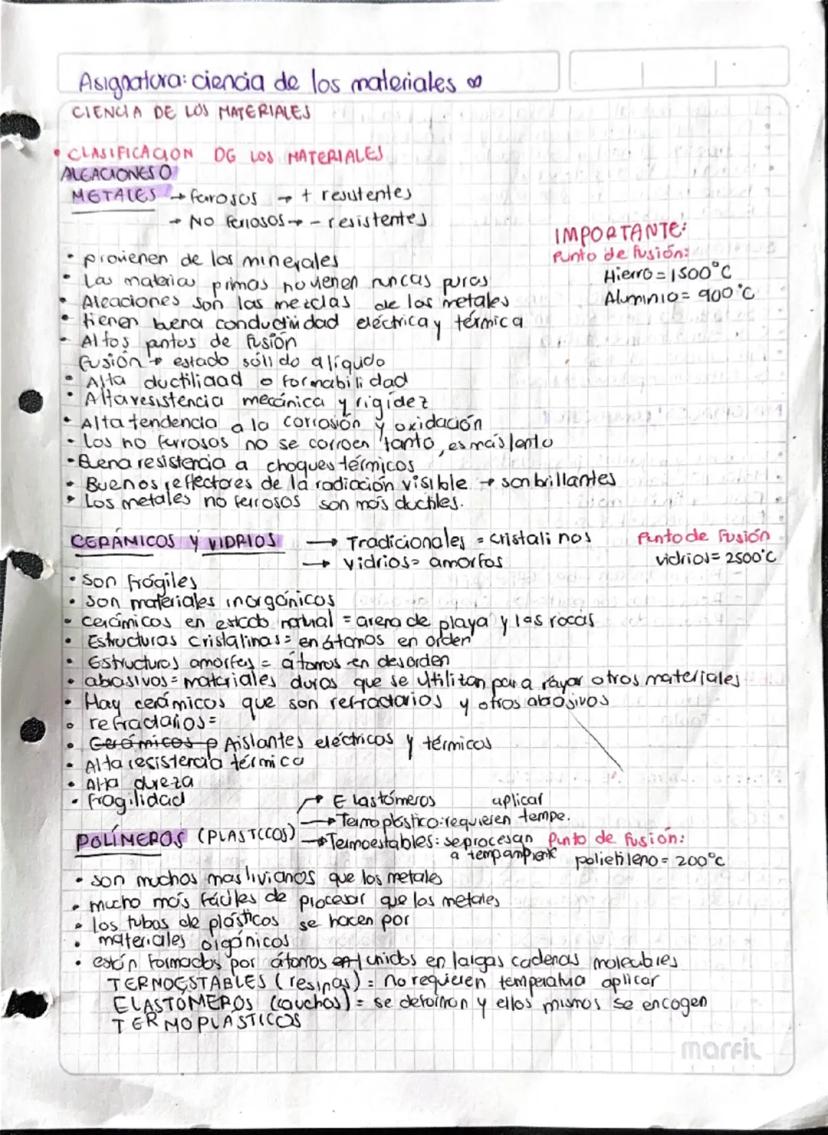 Asignatura: ciencia de los materiales
CIENCIA DE LOS MATERIALES
• CLASIFICACION DG LOS MATERIALES
ALEACIONES O
METALES → Ferrosos → + resistentes
→ NO Ferrosos → - resistentes
IMPORTANTE:
Punto de fusión:
Hierro = 1500°C
Aluminio = 900°C
• provienen de los minerales
• Las materias primas no vienen nuncas puras
• Aleaciones son las mezclas de los metales
• tienen buena conductividad eléctrica y térmica
• Altos puntos de fusión
fusión → estado sólido a líquido
• Alta ductilidad o formabilidad
• Alta resistencia mecánica y rigidez
• Alta tendencia a la corrosión y oxidación
• Los no ferrosos no se corroen tanto, es más lento
• Buena resistencia a choques térmicos
• Buenos reflectores de la radiación visible → son brillantes
• Los metales no ferrosos son más ductiles.
CERÁMICOS Y VIDRIOS → Tradicionales = cristalinos
→ Vidrios = amorfos
Punto de Fusión
vidrios = 2500°C
• Son frágiles
• son materiales inorgánicos
• cerámicos en estado natural = arena de playa y las rocas
• Estructuras cristalinas = en átomos en orden
• Estructuras amorfas = átomos en desorden
• abrasivos = materiales duros que se utilitan para rayar otros materiales
• Hay cerámicos que son refractarios y otros abrasivos
• refractarios =
• Cerámicos Aislantes eléctricos y térmicos
• Alta resistencia térmica
• Alta dureza
• fragilidad
POLÍMEROS (PLASTICOS) → Elastómeros
→ Termoplástico: requieren aplicar tempe.
→ Termoestables: se procesan a temp ambiente
Punto de fusión:
polietileno = 200°C
• son muchos mas livianos que los metales
• mucho más fáciles de procesar que los metales
• los tubos de plásticos se hacen por
• materiales orgánicos
• están formados por átomos unidos en largas cadenas moleculares
TERNOESTABLES (resinas) = no requieren temperatura aplicar
ELASTÓMEROS (cauchos) = se deforman y ellos mismos se encogen
TERMOPLASTICOS
marfil